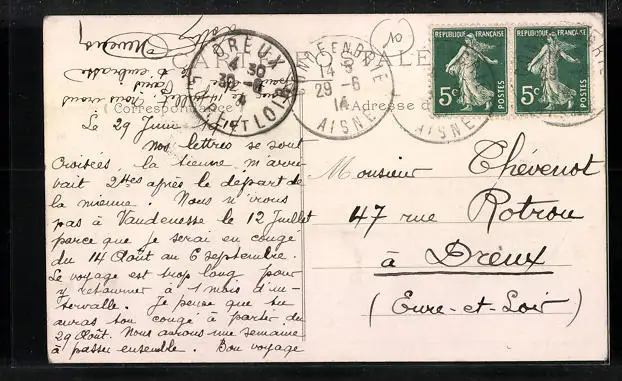 CARTE POSTALE
Correspondance
Adresse
DREUX
4 30
30 - 6
14
EURE-ET-LOIR
14
29 - 6
14
AISNE
AISNE
REPUBLIQUE FRANÇAISE
5c
POSTES
REPUBLIQUE FRANÇAISE
5c
POSTES
Le 29 Juin
Nos lettres se sont
croisées, la tienne m'arri-
vait 2 h es après le départ de
la mienne. Nous n'irons
pas à Vandenesse le 12 Juillet
parce que je serai en congé
du 14 Août au 6 septembre.
Le voyage est trop long pour
y retourner à 1 mois d'in-
tervalle. Je pense que tu
auras ton congé à partir du
29 Août. Nous aurons une semaine
à passer ensemble. Bon voyage
Monsieur Thévenot
47 rue Rotrou
à Dreux
(Eure-et-Loir)